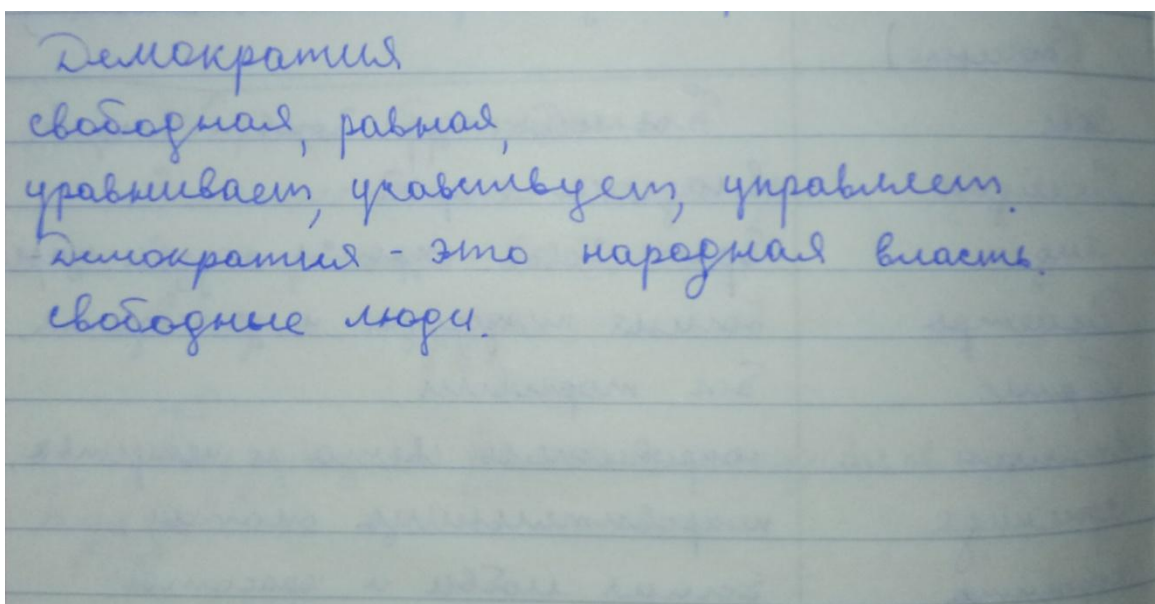 Демократия
свободная, равная,
уравнивает, учавствует, управляет.
Демократия - это народная власть.
свободные люди.